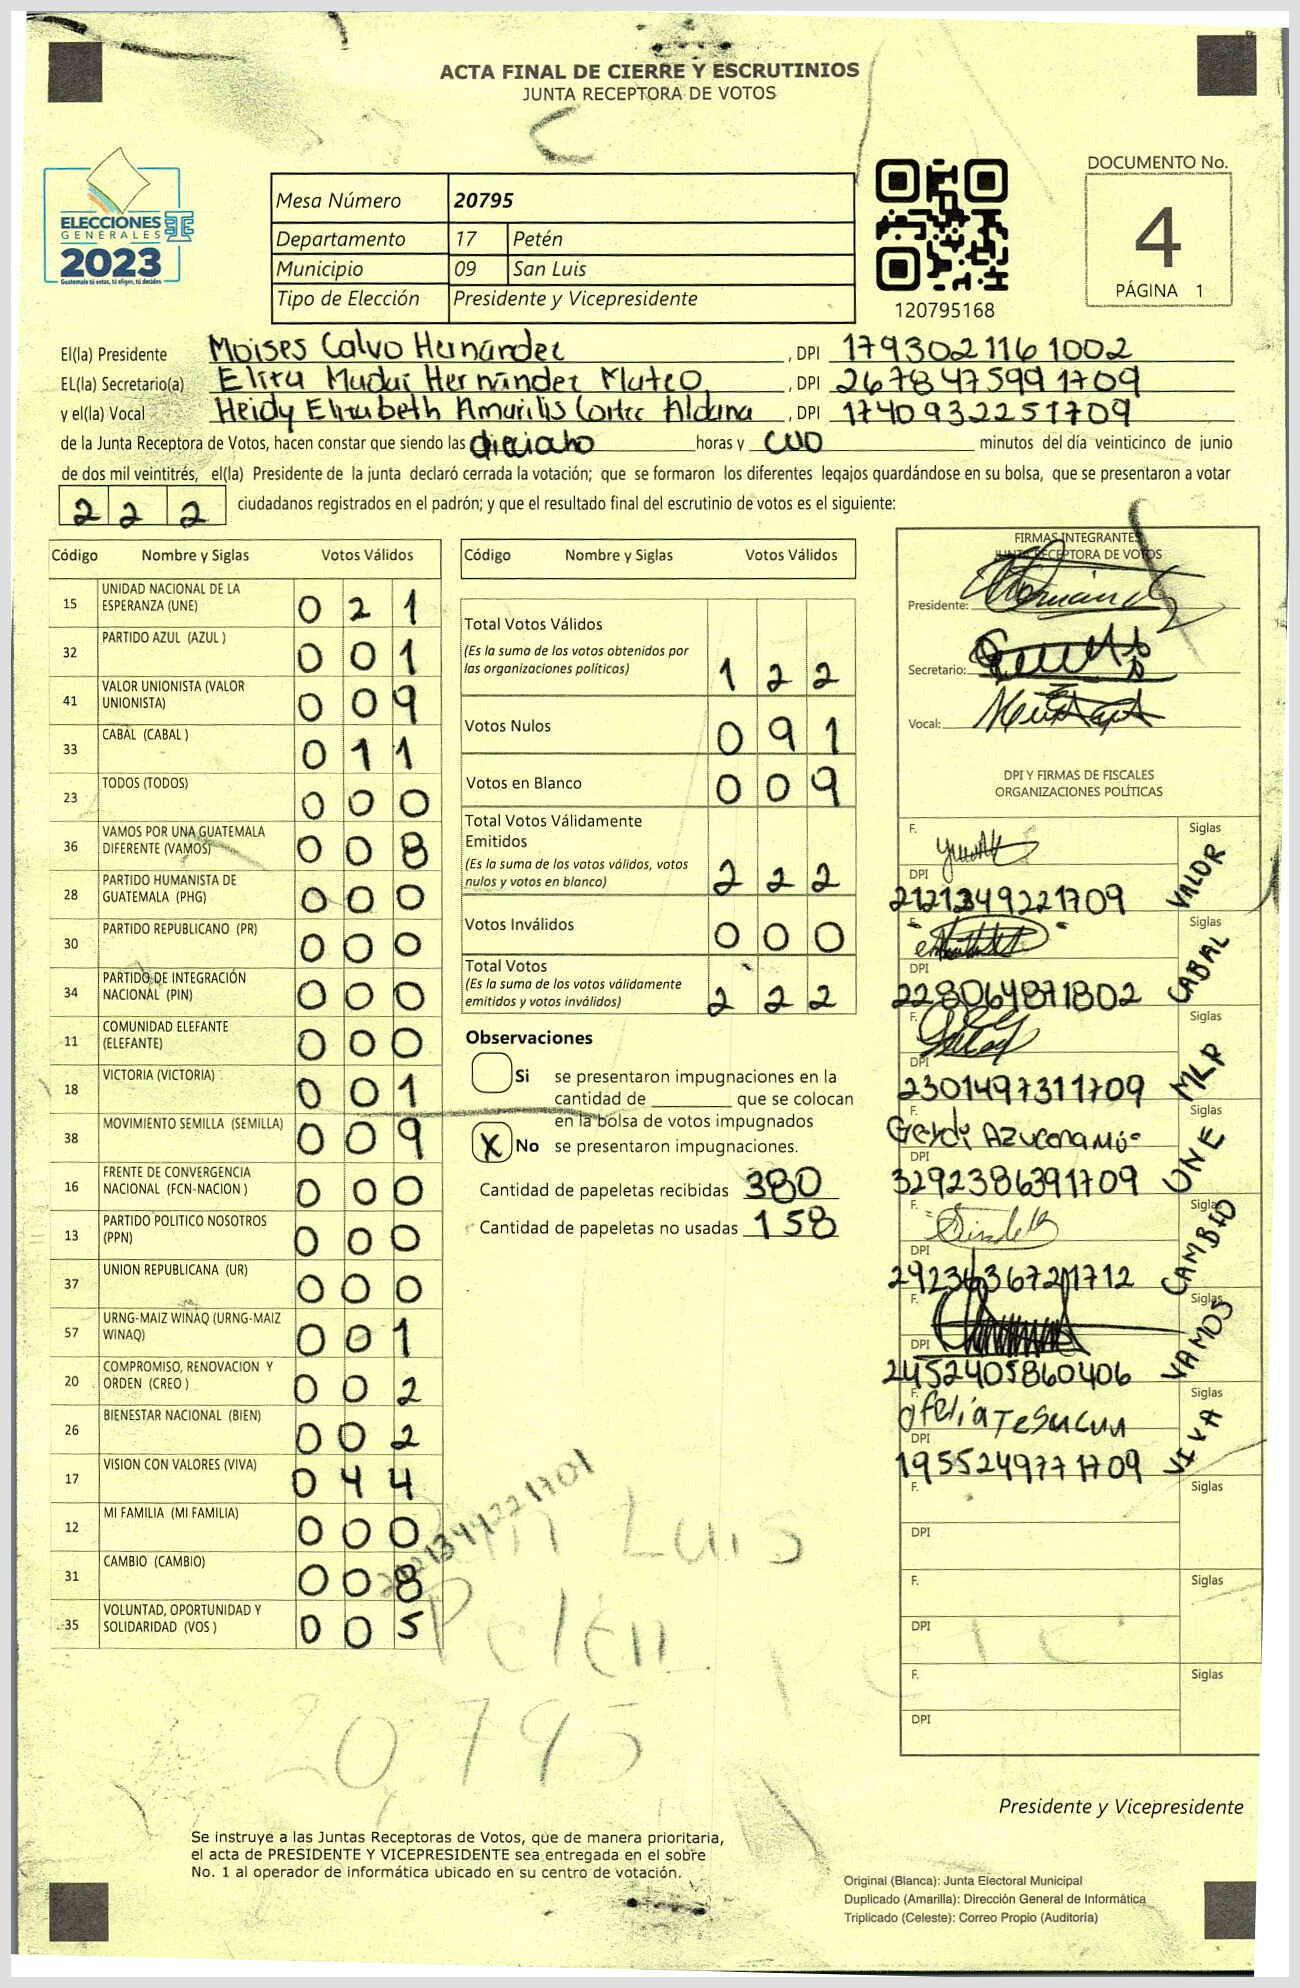 ACTA FINAL DE CIERRE Y ESCRUTINIOS
JUNTA RECEPTORA DE VOTOS
ELECCIONES
GENERALES
2023
Guatemala tú votas, tú eliges, tú decides
Mesa Número 20795
Departamento 17 Petén
Municipio 09 San Luis
Tipo de Elección Presidente y Vicepresidente
120795168
DOCUMENTO No.
4
PÁGINA 1
El(la) Presidente Moises Calvo Hernández, DPI 1793021161002
EL(la) Secretario(a) Hernández Mateo, DPI 2678475991709
y el(la) Vocal Heidy Elizabeth Amarilis Aldana, DPI 1740932251709
de la Junta Receptora de Votos, hacen constar que siendo las horas y minutos del día veinticinco de junio
de dos mil veintitrés, el(la) Presidente de la junta declaró cerrada la votación; que se formaron los diferentes legajos guardándose en su bolsa, que se presentaron a votar
2 2 2 ciudadanos registrados en el padrón; y que el resultado final del escrutinio de votos es el siguiente:
Código Nombre y Siglas Votos Válidos
15 UNIDAD NACIONAL DE LA
ESPERANZA (UNE) 0 2 1
32 PARTIDO AZUL (AZUL ) 0 0 1
41 VALOR UNIONISTA (VALOR
UNIONISTA) 0 0 9
33 CABAL (CABAL ) 0 1 1
23 TODOS (TODOS) 0 0 0
36 VAMOS POR UNA GUATEMALA
DIFERENTE (VAMOS) 0 0 8
28 PARTIDO HUMANISTA DE
GUATEMALA (PHG) 0 0 0
30 PARTIDO REPUBLICANO (PR) 0 0 0
34 PARTIDO DE INTEGRACIÓN
NACIONAL (PIN) 0 0 0
11 COMUNIDAD ELEFANTE
(ELEFANTE) 0 0 0
18 VICTORIA (VICTORIA) 0 0 1
38 MOVIMIENTO SEMILLA (SEMILLA) 0 0 9
16 FRENTE DE CONVERGENCIA
NACIONAL (FCN-NACION ) 0 0 0
13 PARTIDO POLITICO NOSOTROS
(PPN) 0 0 0
37 UNION REPUBLICANA (UR) 0 0 0
57 URNG-MAIZ WINAQ (URNG-MAIZ
WINAQ) 0 0 1
20 COMPROMISO, RENOVACION Y
ORDEN (CREO ) 0 0 2
26 BIENESTAR NACIONAL (BIEN) 0 0 2
17 VISION CON VALORES (VIVA) 0 4 4
12 MI FAMILIA (MI FAMILIA) 0 0 0
31 CAMBIO (CAMBIO) 0 0 8
35 VOLUNTAD, OPORTUNIDAD Y
SOLIDARIDAD (VOS ) 0 0 5
Código Nombre y Siglas Votos Válidos
Total Votos Válidos
(Es la suma de los votos obtenidos por
las organizaciones políticas) 1 2 2
Votos Nulos 0 9 1
Votos en Blanco 0 0 9
Total Votos Válidamente
Emitidos
(Es la suma de los votos válidos, votos
nulos y votos en blanco) 2 2 2
Votos Inválidos 0 0 0
Total Votos
(Es la suma de los votos válidamente
emitidos y votos inválidos) 2 2 2
Observaciones
Si se presentaron impugnaciones en la
cantidad de que se colocan
en la bolsa de votos impugnados
X No se presentaron impugnaciones.
Cantidad de papeletas recibidas 380
Cantidad de papeletas no usadas 158
San Luis
Petén
20795
FIRMAS INTEGRANTES
JUNTA RECEPTORA DE VOTOS
Presidente:
Secretario:
Vocal:
DPI Y FIRMAS DE FISCALES
ORGANIZACIONES POLÍTICAS
F. Siglas VALOR
DPI
F. Siglas CABAL
DPI 2280648711802
F. Siglas MLP
DPI 2301497311709
F. Siglas UNE
DPI 3292386391709
F. Siglas CAMBIO
DPI
F. Siglas VAMOS
DPI 2452405860406
F. Ofelia Siglas VIVA
DPI 1955249771709
F. Siglas
DPI
F. Siglas
DPI
F. Siglas
DPI
Presidente y Vicepresidente
Se instruye a las Juntas Receptoras de Votos, que de manera prioritaria,
el acta de PRESIDENTE Y VICEPRESIDENTE sea entregada en el sobre
No. 1 al operador de informática ubicado en su centro de votación.
Original (Blanca): Junta Electoral Municipal
Duplicado (Amarilla): Dirección General de Informática
Triplicado (Celeste): Correo Propio (Auditoría)